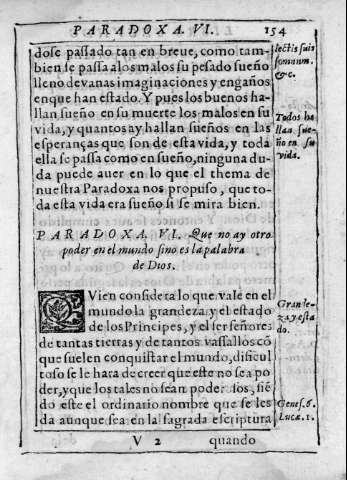 PARADOXA. VI. 154
dose passado tan en breue, como tam-
bien se passa a los malos su pesado sueño
lleno de vanas imaginaciones y engaños
en que han estado. Y pues los buenos ha-
llan sueño en su muerte los malos en su
vida, y quantos ay hallan sueños en las
esperanças que son de esta vida, y toda
ella se passa como en sueño, ninguna du-
da puede auer en lo que el thema de
nuestra Paradoxa nos propuso, que to-
da esta vida era sueño si se mira bien.
lectis suis
somnum.
&c.
Todos ha
llan sue-
ño en su
vida.
PARADOXA. VI. Que no ay otro
poder en el mundo sino es la palabra
de Dios.
QVien considera lo que vale en el
mundo la grandeza y el estado
de los Principes, y el ser señores
de tantas tierras y de tantos vassallos cõ
que suelen conquistar el mundo, dificul
toso se le hara de creer que este no sea po
der, y que los tales no sean poderosos, siẽ
do este el ordinario nombre que se les
da aunque sea en la sagrada escriptura
Grande-
za y esta
do.
Genes. 6.
Lucæ. 1.
V 2 quando